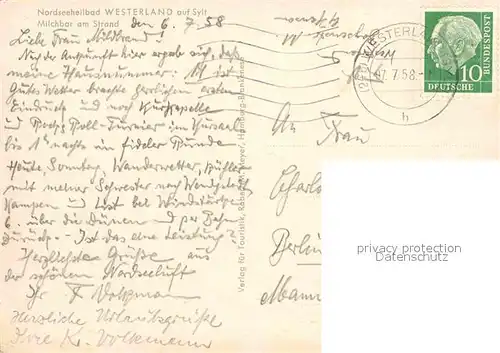 Nordseeheilbad WESTERLAND auf Sylt
Milchbar am Strand
den 6. 7. 58
Liebe Frau Mildbrand!
Nach der Ankunft hier ergab sich, daß
meine Hausnummer: 11 ist
Gutes Wetter brachte herrlichen ersten
Eindruck und noch Kurkapelle
und Rock-Roll-Turnier im Kursaal
bis 1° nachts in fideler Runde
Heute, Sonntag, Wanderwetter,
mit meiner Schwester nach
Kampen und List bei Windstärke
6 über die Dünen und per Bahn
zurück. - Ist das eine Leistung?
Herzlichste Grüße aus
der schönen Nordseeluft
Ihr
Herzliche Urlaubsgrüße
Ihre K. Volkmann
Verlag für Touristik, Robert M. Meyer, Hamburg-Bramfeld
WESTERLAND
7.58
h
DEUTSCHE
BUNDESPOST
10
An Frau
Charlo
Berlin
Mann
privacy protection
Datenschutz